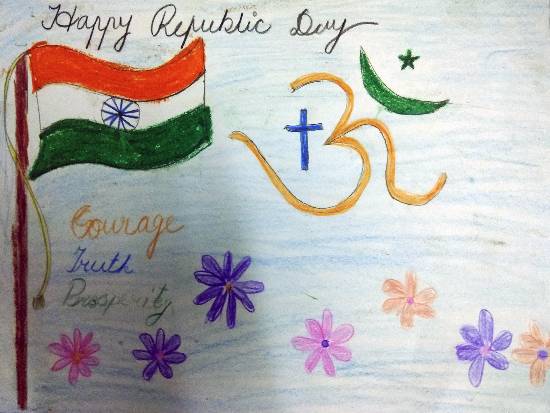 Happy Republic Day
Courage
Truth
Prosperity